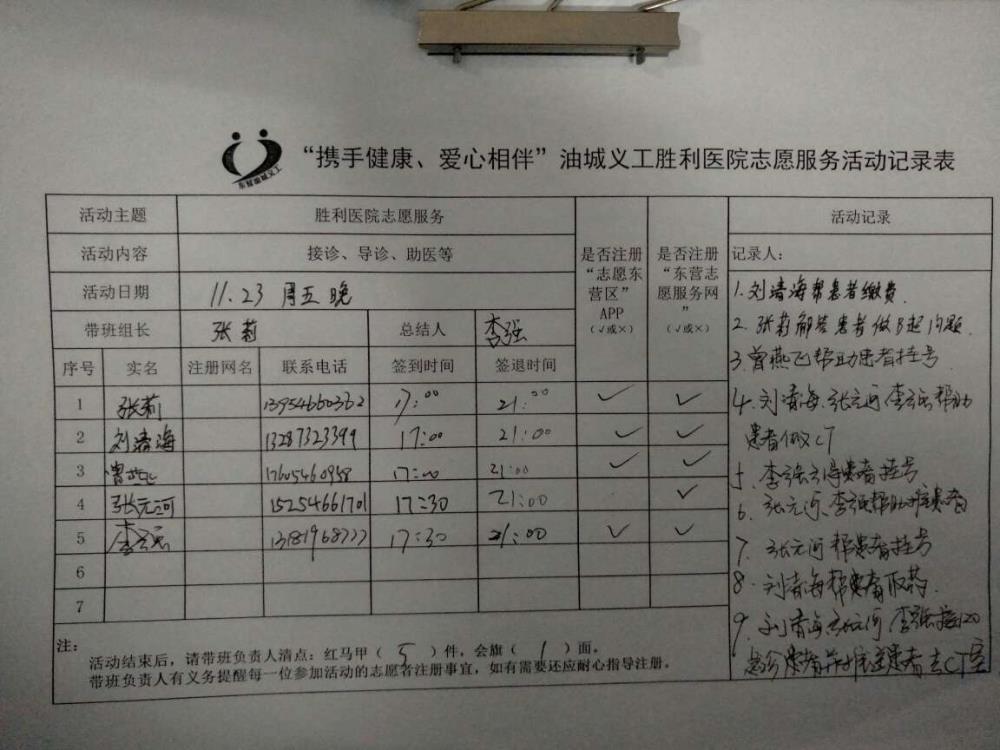 东营油城义工
“携手健康、爱心相伴”油城义工胜利医院志愿服务活动记录表
活动主题 胜利医院志愿服务
活动内容 接诊、导诊、助医等
活动日期 11.23 周五晚
带班组长 张莉 总结人 李强
序号 实名 注册网名 联系电话 签到时间 签退时间
是否注册“志愿东营区”APP（√或×）
是否注册“东营志愿服务网”（√或×）
1 张莉 13954660362 17:00 21:00 ✓ ✓
2 刘清海 13287323399 17:00 21:00 ✓ ✓
3 曾燕飞 17605460958 17:00 21:00 ✓ ✓
4 张元河 15254661701 17:30 21:00 ✓
5 李强 17:30 21:00 ✓ ✓
6
7
注：
活动结束后，请带班负责人清点：红马甲（ 5 ）件，会旗（ 1 ）面。
带班负责人有义务提醒每一位参加活动的志愿者注册事宜，如有需要还应耐心指导注册。
活动记录
记录人：
1.刘清海帮患者缴费.
2.张莉解答患者做B超问题.
3.曾燕飞帮助患者挂号
4.刘清海.张元河.李强帮助
患者做CT
5.李强引导患者挂号
6.张元河、李强帮助推患者
7.张元河帮患者挂号
8.刘清海帮患者取药.
9.刘清海.张元河.李强接120
急诊患者并推至患者去CT室